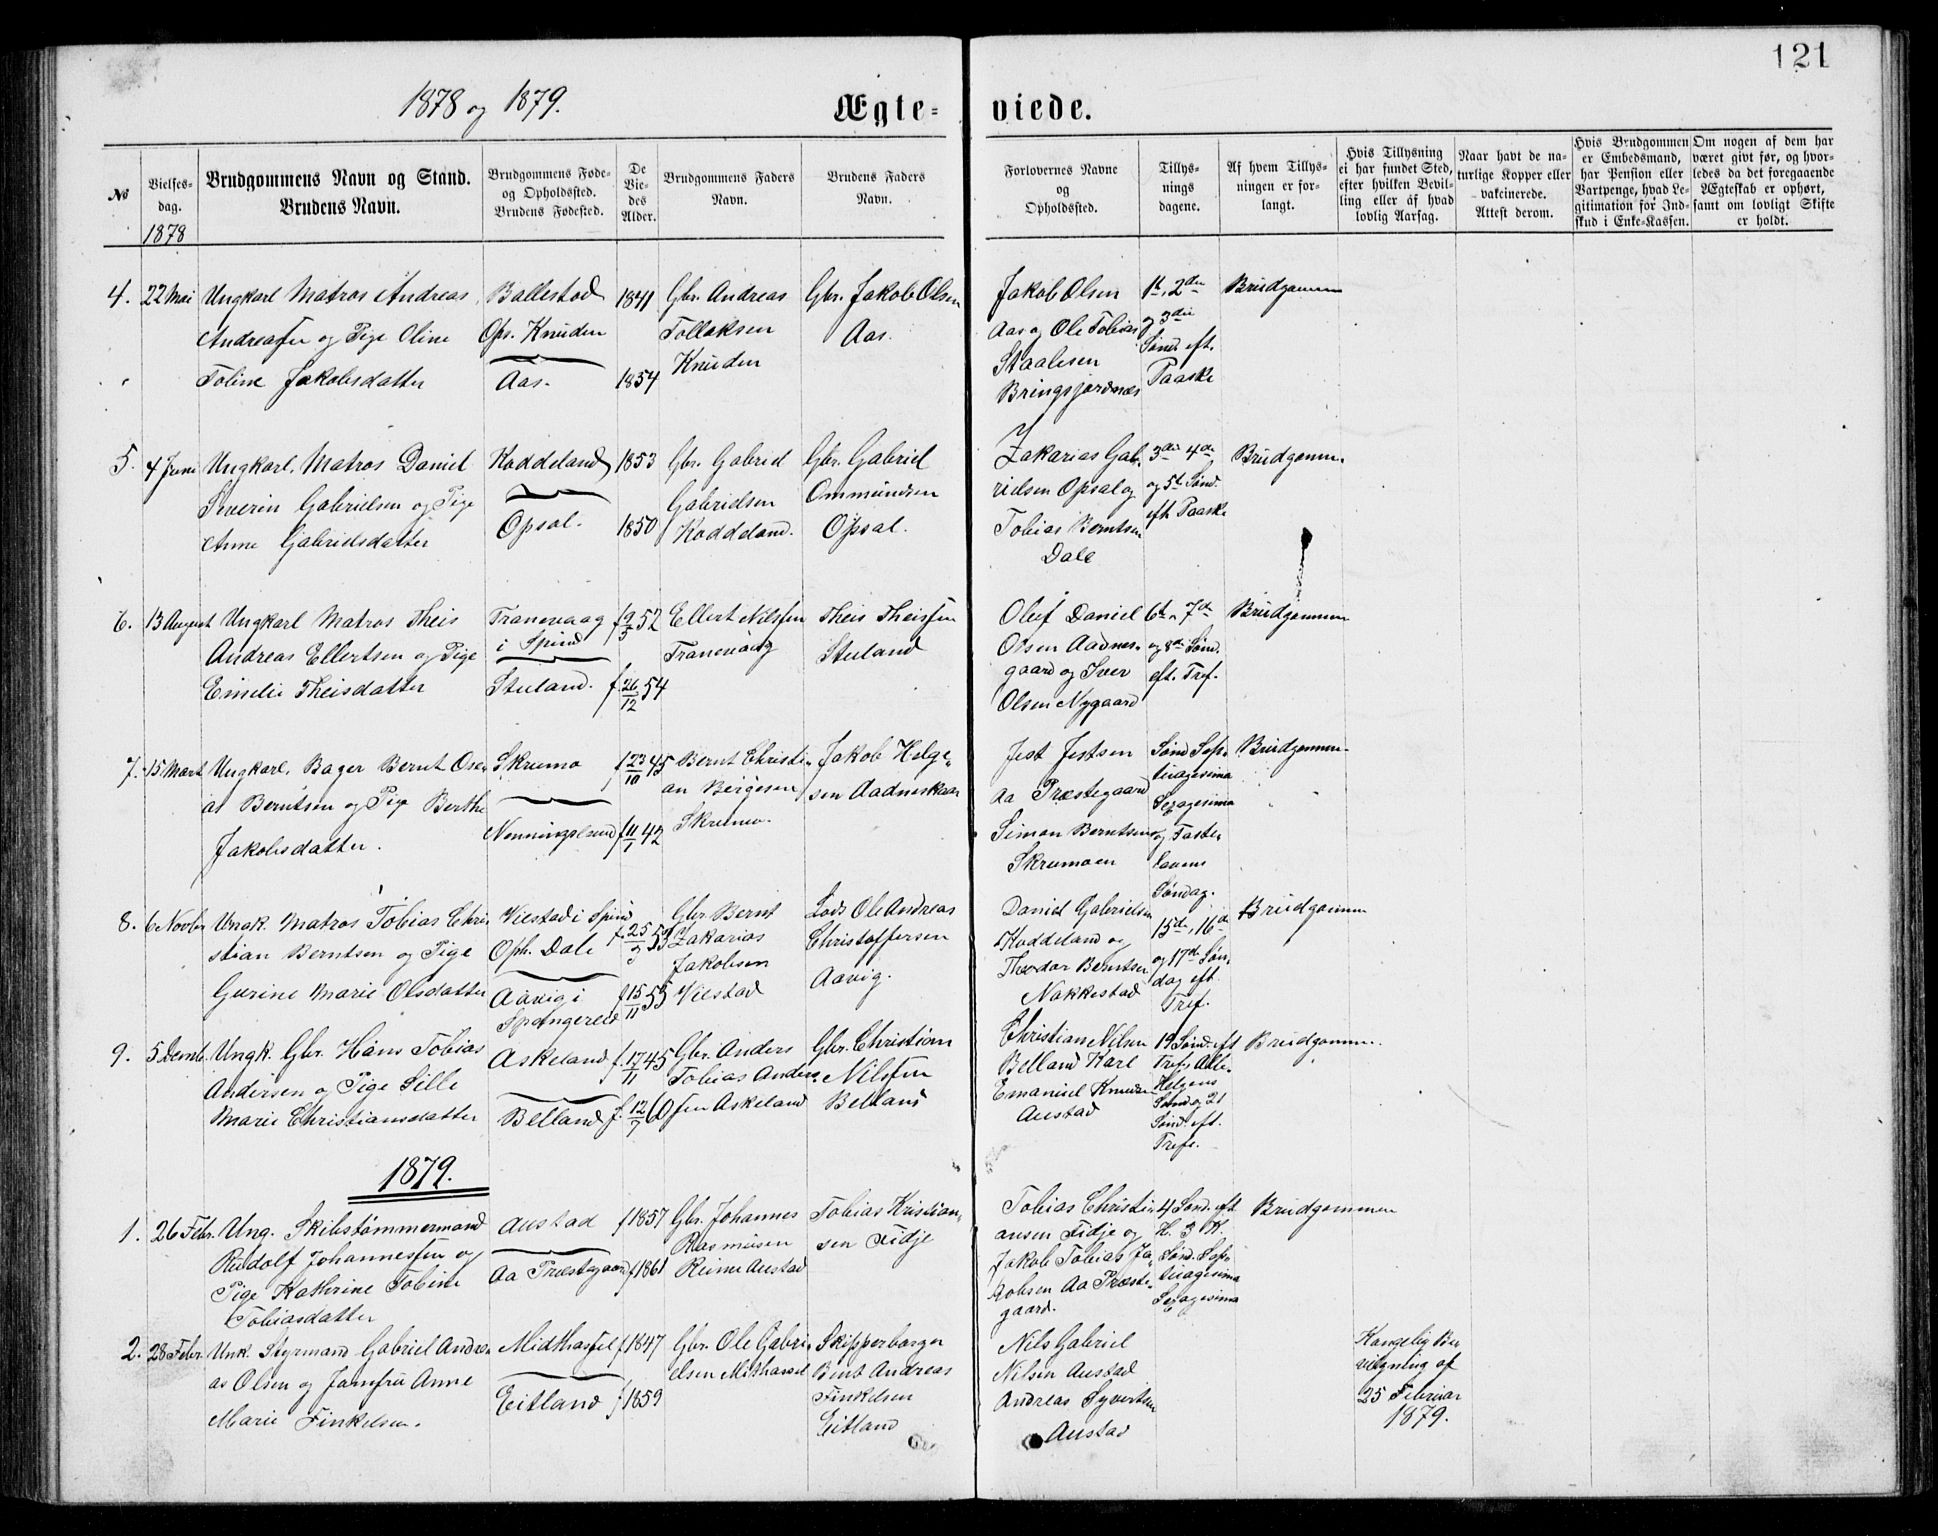 121
1878 og 1879.
Ægte-viede.
No
Vielses-
dag.
1878
Brudgommens Navn og Stand.
Brudens Navn.
Brudgommens Føde-
og Opholdssted.
Brudens Fødested.
De
Vie-
des
Alder.
Brudgommens Faders
Navn.
Brudens Faders
Navn.
Forlovernes Navne
og
Opholdssted.
Tillys-
nings
dagene.
Af hvem Tillys-
ningen er for-
langt.
Hvis Tillysning
ei har fundet Sted,
efter hvilken Bevil-
ling eller af hvad
lovlig Aarsag.
Naar havt de na-
turlige Kopper eller
vakcinerede.
Attest derom.
Hvis Brudgommen
er Embedsmand,
har Pension eller
Vartpenge, hvad Le-
gitimation for Ind-
skud i Enke-Kassen.
Om nogen af dem har
været givt før, og hvor-
ledes da det foregaaende
Ægteskab er ophørt,
samt om lovligt Skifte
er holdt.
4.
22 Mai
Ungkarl Matros Andreas
Andreasen og Pige Oline
Toline Jakobsdatter
Ballestad
Ops. Knuden
Aas.
1841
1854
Gbr. Andreas
Tollaksen
Knuden
Gbr. Jakob Olsen
Aas.
Jakob Olsen
Aas og Ole Tobias
Staalesen
Bringsjordnæs
1ste, 2den
og 3die
Sønd. eft.
Paaske
Brudgommen
5.
4 Juni
Ungkarl, Matros Daniel
Severin Gabrielsen og Pige
Anne Gabrielsdatter
Koddeland
Opsal.
1853
1850
Gbr. Gabriel
Gabrielsen
Koddeland.
Gbr. Gabriel
Ommundsen
Opsal.
Zakarias Gab-
rielsen Opsal og
Tobias Berntsen
Dale
3die 4de
og 5te Sønd.
eft. Paaske
Brudgommen
6.
13 August
Ungkarl Matros Theis
Andreas Ellertsen og Pige
Emelie Theisdatter
Tranevaag
i Spind
Stuland.
f. 9/5 52
f. 26/12 54
Ellert Nilssen
Tranevaag
Theis Theissen
Stuland
Oluf Daniel
Olsen Aadnes-
gaard og Iver
Olsen Nygaard
6te, 7de
og 8de Sønd.
eft. Tref.
Brudgommen
7.
15 Mart
Ungkarl, Bager Bernt Ose-
as Berntsen og Pige Berthe
Jakobsdatter.
Skrumo
Nenningslund
f. 23/10 45
f. 11/1 42
Bernt Christi-
an Børgesen
Skrumo.
Jakob Helge-
sen Aadneskaar
Jest Jestsen
Aa Præstegaard
Simon Berntsen
Skrumoen
Sønd Sep-
tuagesima
Sexagesima
og Faste-
lavens
Søndag.
Brudgommen
8.
6 Novbr
Ungk. Matros Tobias Chri-
stian Berntsen og Pige
Gurine Marie Olsdatter
Vilstad i Spind
Oph. Dale
Aavig i
Spangereid
f. 25/3 53
f. 15/11 55
Gbr. Bernt
Zakarias
Jakobsen
Vilstad
Lods Ole Andreas
Christoffersen
Aavig.
Daniel Gabrielsen
Koddeland og
Theodor Berntsen
Nakkestad
15de, 16de
og 17de Søn-
dag eft.
Tref.
Brudgommen
9.
5 Decmb.
Ungk. Gbr. Hans Tobias
Andersen og Pige Sille
Marie Christiansdatter
Askeland
Belland
f. 17/11 45
f. 12/7 60
Gbr. Anders
Tobias Anders-
sen Askeland
Gbr. Christian
Nilssen
Belland
Christian Nilsen
Belland Karl
Emanuel Knudsen
Austad
19 Sønd. eft
Tref. Alle-
Helgens
Søndag 21
Sønd. eft.
Tref.
Brudgommen.
1879.
1.
26 Febr.
Ung. Skibstømmermand
Rudolf Johannessen og
Pige Kathrine Tobine
Tobiasdatter
Austad
Aa Præstegaard
f 1857
f 1861
Gbr. Johannes
Rasmusen
Reime Austad
Tobias Kristian-
sen Fidje
Tobias Christi-
ansen Fidje og
Jakob Tobias Ja-
cobsen Aa Præste-
gaard.
4 Sønd. eft
H. 3 K.
Sønd. Sep-
tuagesima
Sexagesima
Brudgommen
2.
28 Febr.
Unk. Styrmand Gabriel Andre-
as Olsen og Jomfru Anne
Marie Finkelsen.
Midthassel
Eitland
f 1847
f 1859
Gbr. Ole Gabri-
elsen Mithassel
Skipperborger
Bent Andreas
Finkelsen
Eitland
Nils Gabriel
Nilsen Austad
Andreas Syvertsen
Austad
Kongelig Be-
vilgning af
25 Februar
1879.